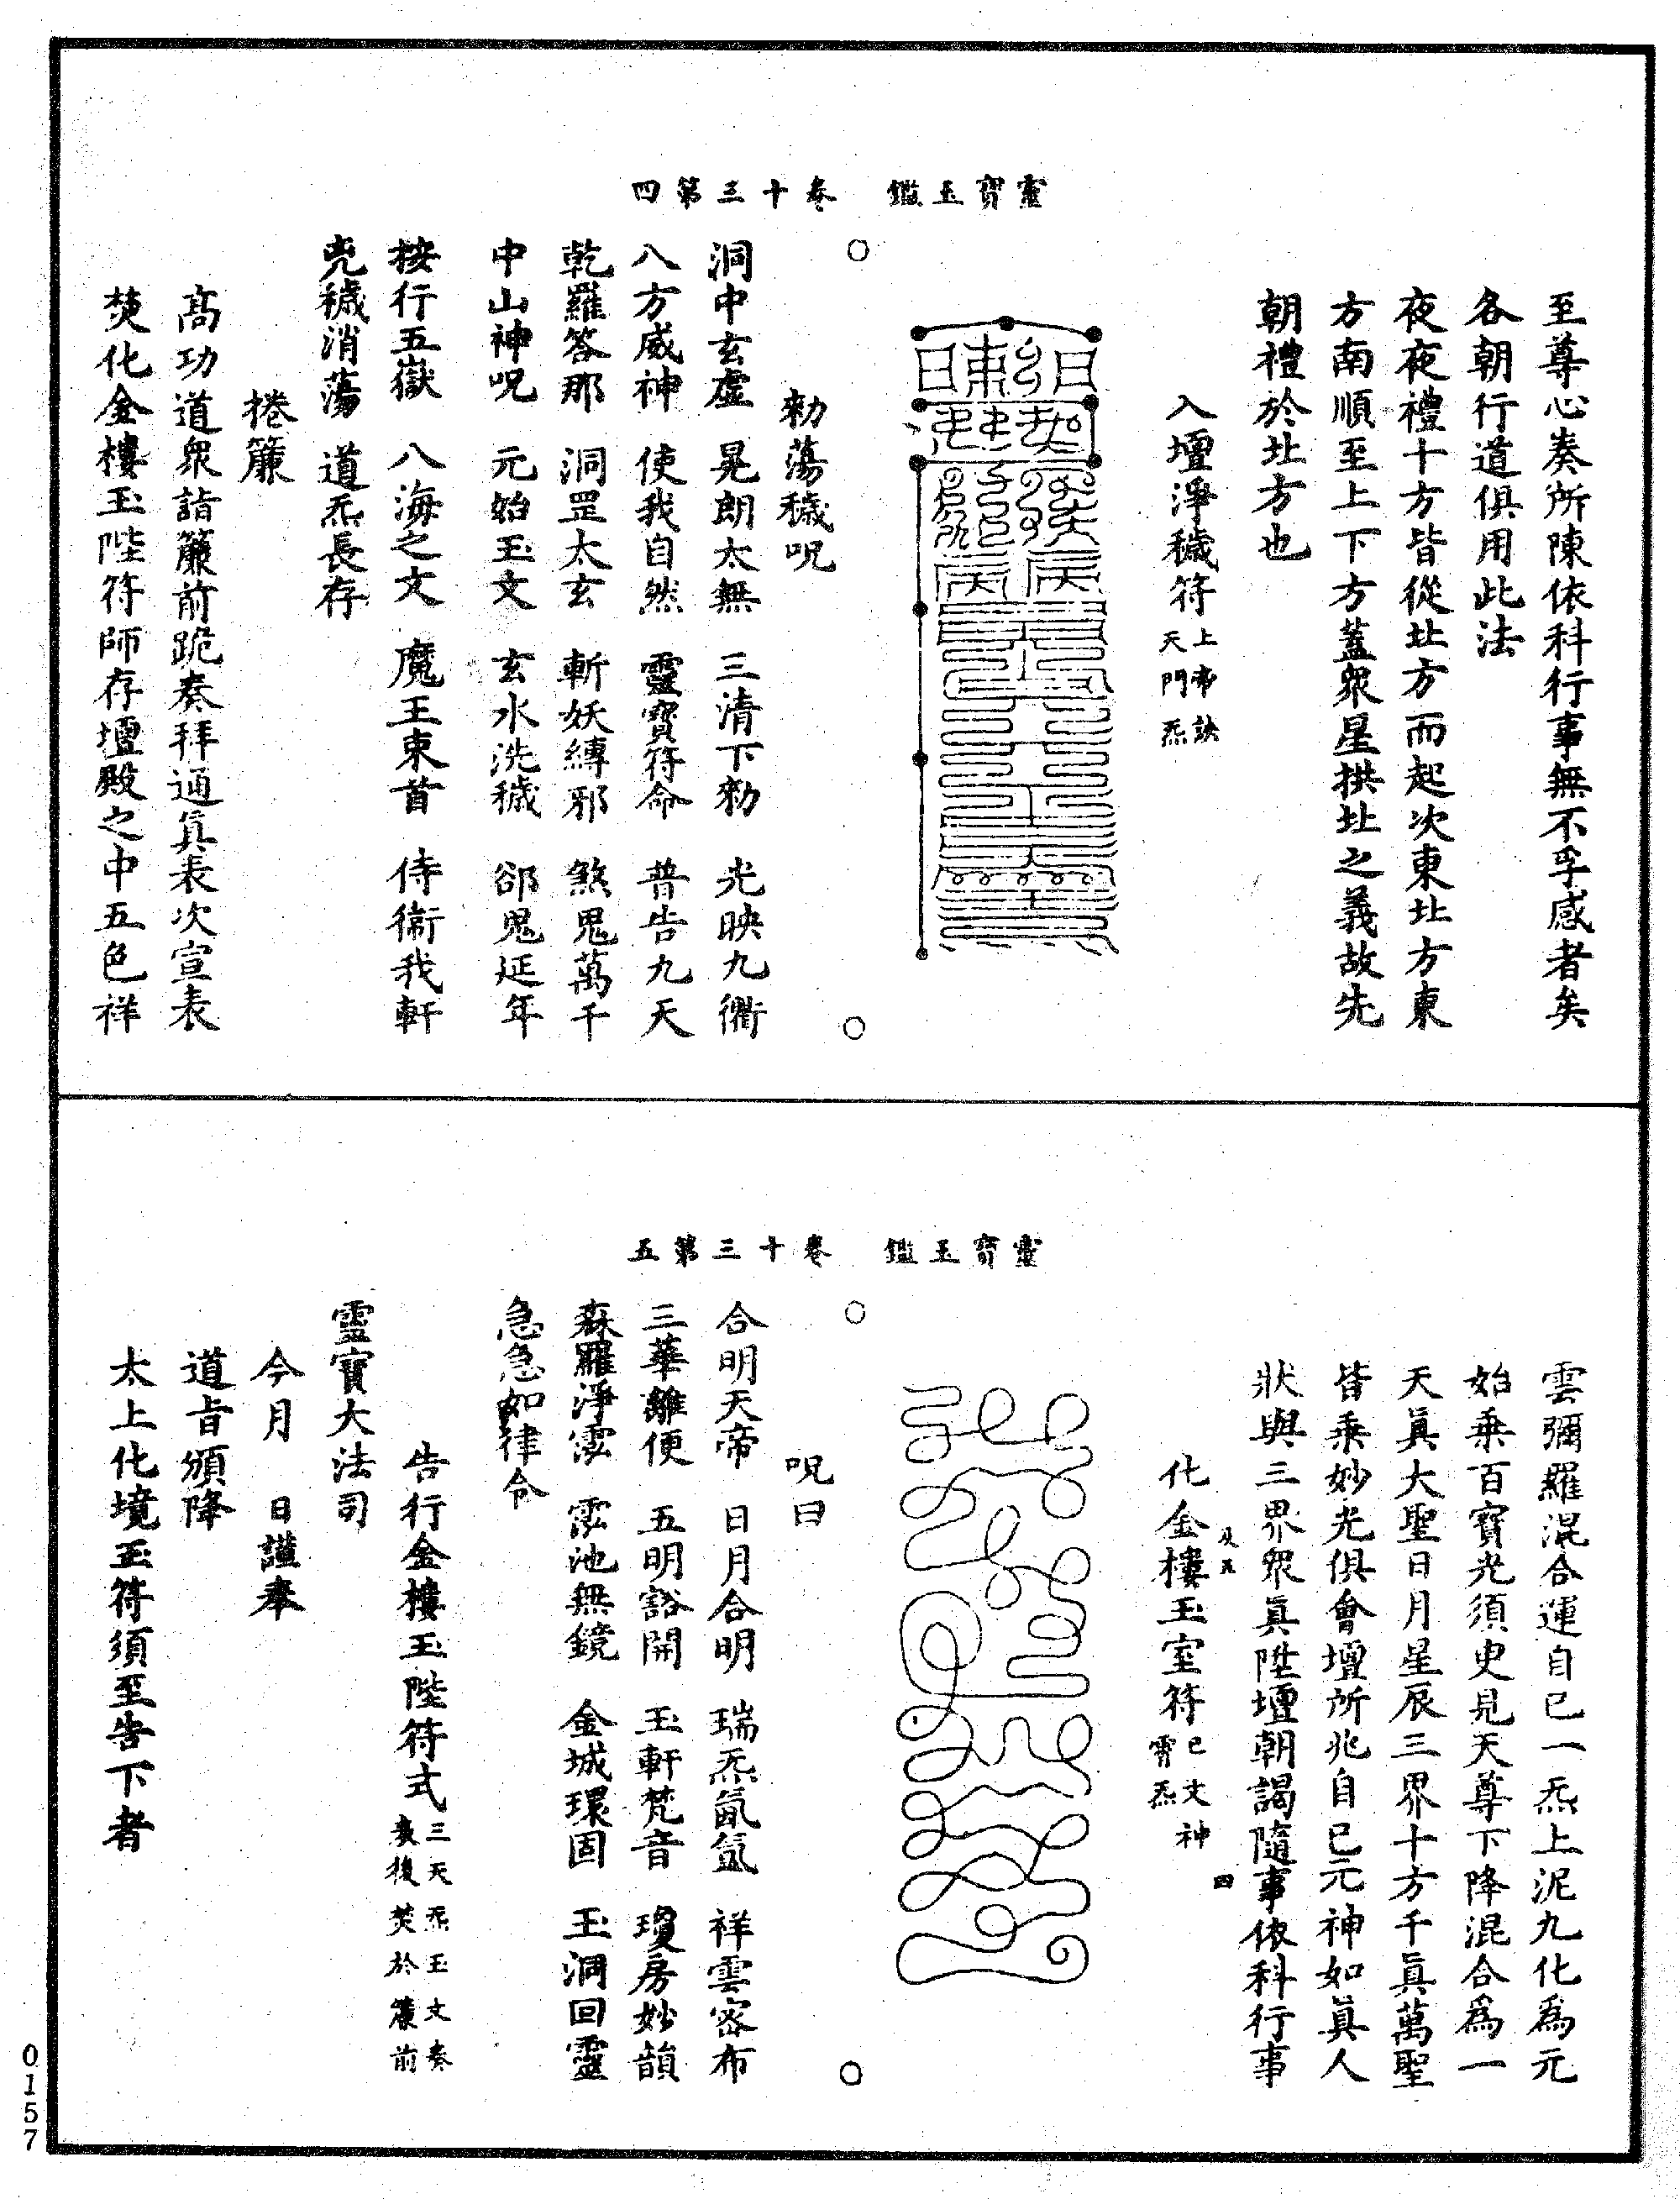 至尊心奏所陳依科行事無不孚感者矣
各朝行道俱用此法
夜夜禮十方皆從北方而起次東北方東
方南順至上下方蓋衆星拱北之義故先
朝禮於北方也
入壇淨穢符上帝訣天門炁
靈寶玉鑑 卷十三第四
勑蕩穢呪
洞中玄虛 晃朗太無 三清下勑 光映九衢
八方威神 使我自然 靈寶符命 普告九天
乾羅答那 洞罡太玄 斬妖縛邪 煞鬼萬千
中山神呪 元始玉文 玄水洗穢 卻鬼延年
按行五嶽 八海之文 魔王束首 侍衛我軒
兇穢消蕩 道炁長存
捲簾
高功道衆詣簾前跪奏拜通眞表次宣表
焚化金樓玉陛符師存壇殿之中五色祥
雲彌羅混合運自己一炁上泥九化爲元
始乘百寶光須臾見天尊下降混合爲一
天眞大聖日月星辰三界十方千眞萬聖
皆乘妙光俱會壇所兆自己元神如眞人
狀與三界衆眞陞壇朝謁隨事依科行事
化金樓玉室符已文神霄炁
靈寶玉鑑 卷十三第五
呪曰
合明天帝 日月合明 瑞炁氤氳 祥雲密布
三華離便 五明豁開 玉軒梵音 瓊房妙韻
森羅淨泓 泓池無鏡 金城環固 玉洞回靈
急急如律令
告行金樓玉陛符式三天炁玉文奏表後焚於簾前
靈寶大法司
今月 日謹奉
道旨頒降
太上化境玉符須至告下者
0157